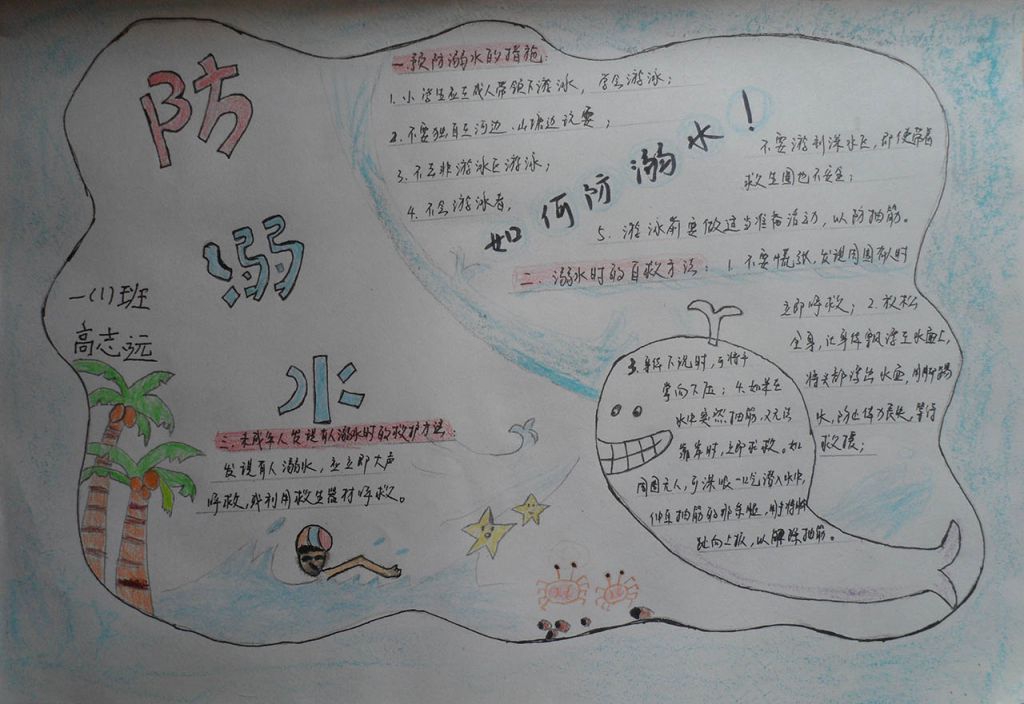 防
溺
水
一(1)班
高志远
如何防溺水！
一.预防溺水的措施：
1.小学生应在成人带领下游泳，学会游泳；
2.不要独自在河边、山塘边玩耍；
3.不去非游泳区游泳；
4.不会游泳者，
不要游到深水区，即使带着
救生圈也不安全；
5.游泳前要做适当准备活动，以防抽筋。
二.溺水时的自救方法：1.不要慌张，发现周围有人时
立即呼救；2.放松
全身，让身体飘浮在水面上，
将头部浮出水面，用脚踢
水，防止体力丧失，等待
救援；
3.身体下沉时，可将手
掌向下压；4.如果在
水中突然抽筋，又无法
靠岸时，立即求救。如
周围无人，可深吸一口气潜入水中，
伸直抽筋的那条腿，用手将脚
趾向上扳，以解除抽筋。
三.未成年人发现有人溺水时的救护方法：
发现有人溺水，应立即大声
呼救，或利用救生器材呼救。